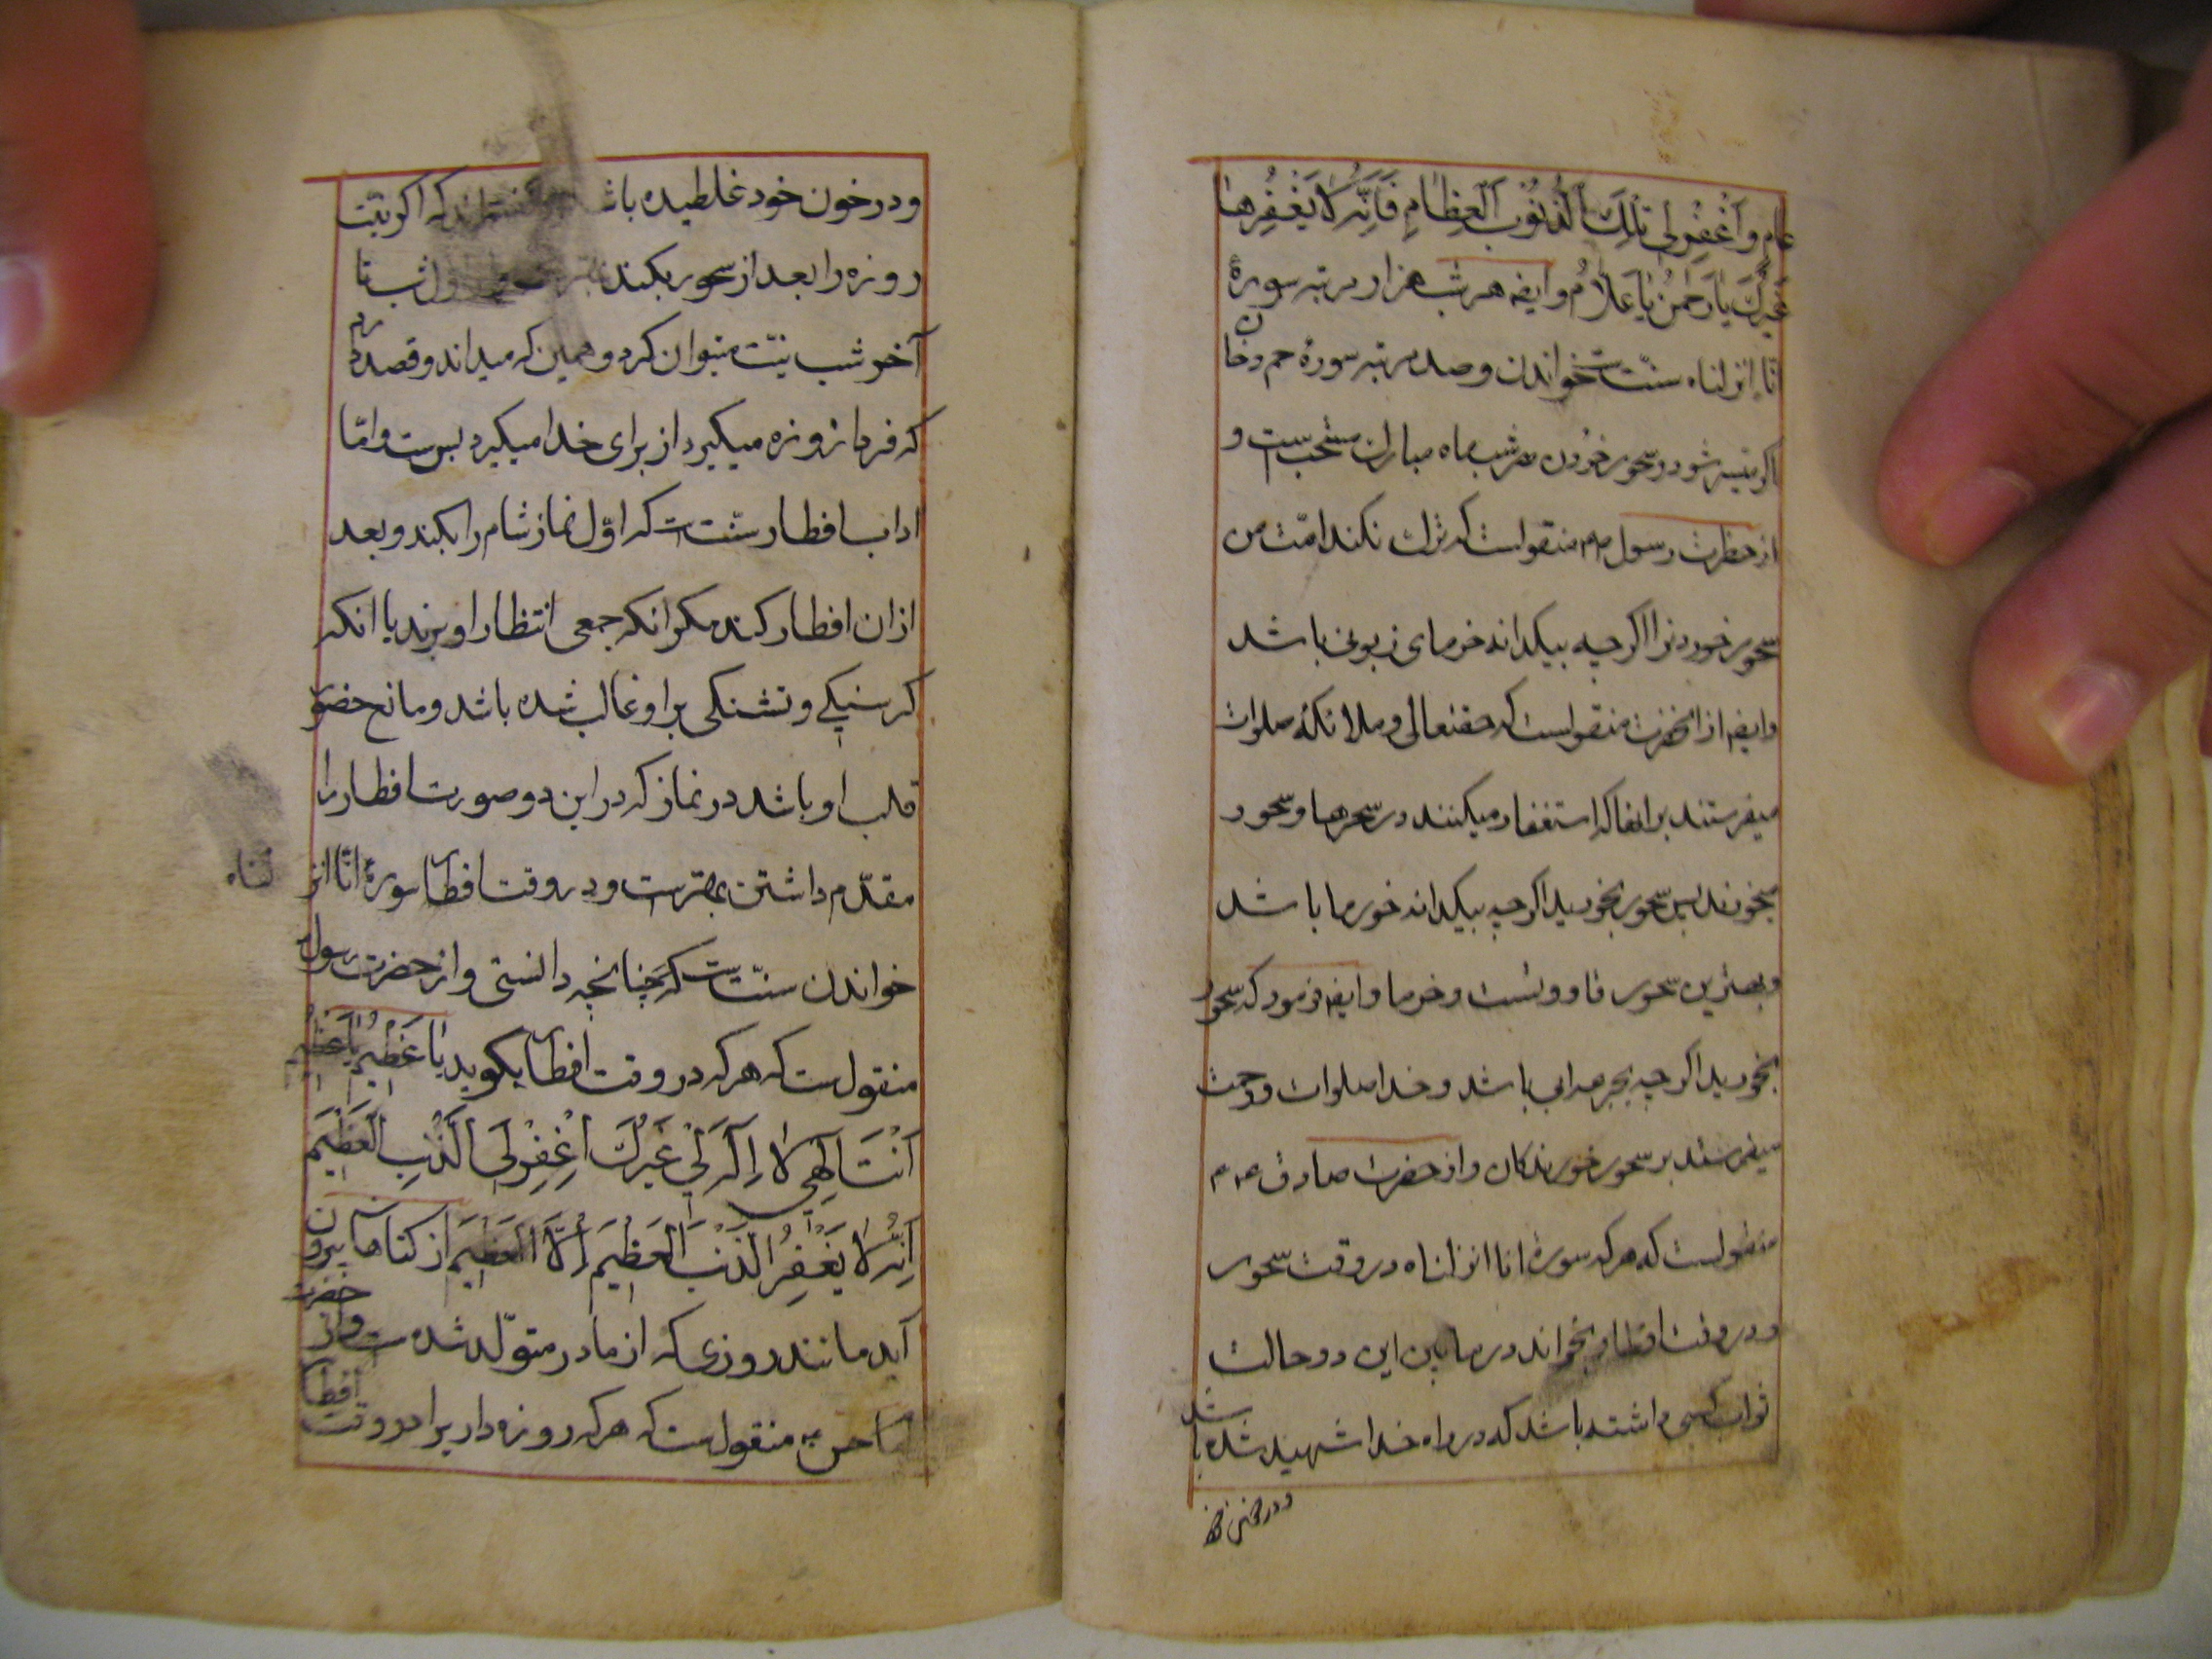 عام وَاغْفِرْلی تِلْكَ الذُّنُوبَ الْعِظٰامِ فَاِنَّهُ لٰا یَغْفِرُهٰا
غَیْرُكَ یٰا رَحْمٰنُ یٰا عَلّٰامُ وایضه هر شب هزار مرتبه سورهٔ
انّا انزلناه سنّت ست خواندن وصد مرتبه سورهٔ حم دخان
اکر میسر شود و سحور خوردن هر شب ماه مبارك مستحب ست و
از حظرت رسول صلم منقولست که ترك نکند امّت من
سحور خوردنرا اکرچیه بیکدانه خرمای زبونی باشد
وایضه از انحضرت منقولست که حقتعالی وملائکه صلوات
میفرستند برانها که استغفار میکنند در سحرها و سحور
میخورند پس سحور بخورید اکرچیه بیکدانه خورما باشد
وبهترین سحور قاووتست وخرما وایضه فرمود که سحور
بخورید اکرچیه بجرعه ابی باشد وخدا صلوات ورحمت
میفرستد بر سحور خورندکان واز حضرت صادق ع م
منقولست که هر که سورهٔ انا انزلناه در وقت سحور
و در وقت افطار بخواند در مابین این دو حالت
ثواب کسی داشته باشد که در راه خدا شهید شده باشد
و در خون خود
و در خون خود غلطیده باشد که اکر نیّت
روزه را بعد از سحور بکند شب تا
آخر شب نیّت میتوان کرد و همین که میداند وقصد دارم
که فردا روزه میکیرد از برای خدا میکیرد بس ست وامّا
اداب افطار سنّت ست که اوّل نماز شام را بکند وبعد
ازان افطار کند مکر انکه جمعی انتظار او برند یا انکه
کرسنیکے وتشنکی براو غالب شده باشد ومانع حضور
قلب او باشد در نماز که در این دو صورت افطار را
مقدّم داشتن بهترست و در وقت افطار سورهٔ انّا انزلناه
خواندن سنّت ست که چنانچه دانستی واز حضرت رسول
منقول ست که هر که در وقت افطار بکوید یٰا عَظیٖمُ یٰا عَظیٖمُ
اَنْتَ اِلٰهِی لٰا اِلٰهَ لِیْ غَیْرُكَ اِغْفِرْلِیَ الذَّنْبَ الْعَظیٖمَ
اِنَّهُ لٰا یَغْفِرُ الذَّنْبَ الْعَظیٖمَ اِلَّا الْعَظیٖمُ از کناهان بیرون
آید مانند روزی که از مادر متولّد شده ست واز حضرت
منقول ست که هر که روزه دار برا در وقت افطار